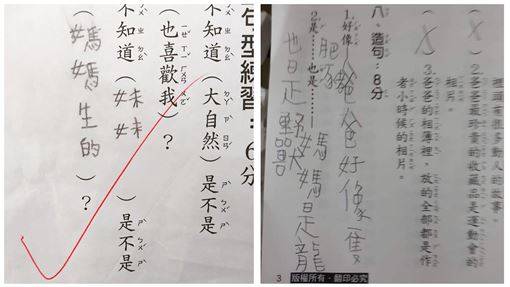 句型練習：6分
不知道（大自然）是不是
（也喜歡我）？
不知道（妹妹）是不是
（媽媽生的）？
裡頭有很多動人的故事。
（X）2.爸爸最珍貴的收藏品是運動會的
相片。
（X）3.爸爸的相簿裡，放的全部都是作
者小時候的相片。
八、造句：8分
1.好像 爸爸好像隻
肥豬
2.是……也是…… 媽媽是龍
也是野獸
3 版權所有‧翻印必究